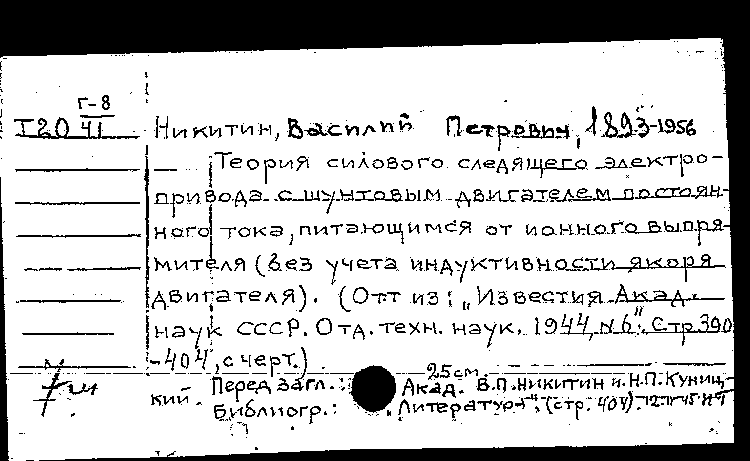 Г-8
I20 41 Никитин, Василий Петрович, 1893-1956
Теория силового следящего электро-
привода с шунтовым двигателем постоян-
ного тока, питающимся от ионного выпря-
мителя (без учета индуктивности якоря
двигателя). (Отт из: „Известия Акад.
наук СССР. Отд. техн. наук. 1944, № 6". Стр 390
-404, с черт.)
25 см.
кий. Перед загл.: Акад. В.П. Никитин и Н.П. Куниц-
Библиогр.: „Литература". (стр. 404).